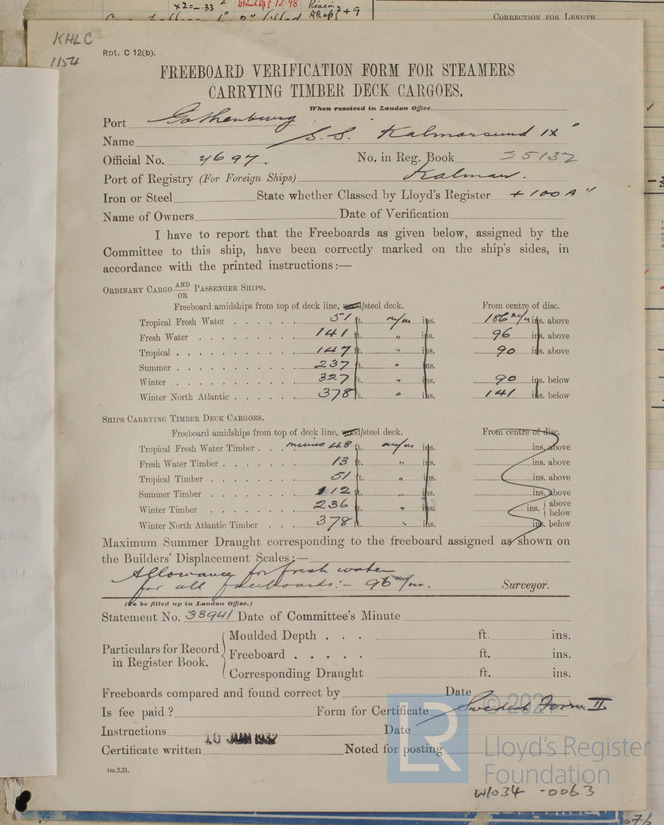 x2=-.33
12.98
+9
CORRECTION FOR LENGTH.
KHLC
1154
Rpt. C 12(b).
FREEBOARD VERIFICATION FORM FOR STEAMERS
CARRYING TIMBER DECK CARGOES.
When received in London Office
Port Gothenburg
Name S.S. "Kalmarsund IX"
Official No. 4697. No. in Reg. Book 35132
Port of Registry (For Foreign Ships) Kalmar.
Iron or Steel State whether Classed by Lloyd's Register +100A"
Name of Owners Date of Verification
I have to report that the Freeboards as given below, assigned by the
Committee to this ship, have been correctly marked on the ship's sides, in
accordance with the printed instructions:—
ORDINARY CARGO AND/OR PASSENGER SHIPS.
Freeboard amidships from top of deck line, wood/steel deck. From centre of disc.
Tropical Fresh Water . . . . . . 51 ft. m/m ins. 186 m/m ins. above
Fresh Water . . . . . . . 141 ft. " ins. 96 ins. above
Tropical . . . . . . . . 147 ft. " ins. 90 ins. above
Summer . . . . . . . . 237 ft. " ins.
Winter . . . . . . . . 327 ft. " ins. 90 ins. below
Winter North Atlantic . . . . . . 378 ft. " ins. 141 ins. below
SHIPS CARRYING TIMBER DECK CARGOES.
Freeboard amidships from top of deck line, wood/steel deck. From centre of disc.
Tropical Fresh Water Timber . . . minus 48 ft. m/m ins. ins. above
Fresh Water Timber . . . . . . 13 ft. " ins. ins. above
Tropical Timber . . . . . . 51 ft. " ins. ins. above
Summer Timber . . . . . . 112 ft. " ins. ins. above
Winter Timber . . . . . . 236 ft. " ins. ins. above below
Winter North Atlantic Timber . . . . 378 ft. " ins. ins. below
Maximum Summer Draught corresponding to the freeboard assigned as shown on
the Builders' Displacement Scales:—
Allowance for fresh water
for all freeboards:- 96 m/m. Surveyor.
(To be filled up in London Office.)
Statement No. 33941 Date of Committee's Minute
Particulars for Record in Register Book.
Moulded Depth . . . ft. ins.
Freeboard . . . . . ft. ins.
Corresponding Draught ft. ins.
Freeboards compared and found correct by Date
Is fee paid? Form for Certificate Swedish Form II
Instructions Date
16 JUN 1932
Certificate written Noted for posting
4m.7,31.
LR
Lloyd's Register
Foundation
W1034-0063